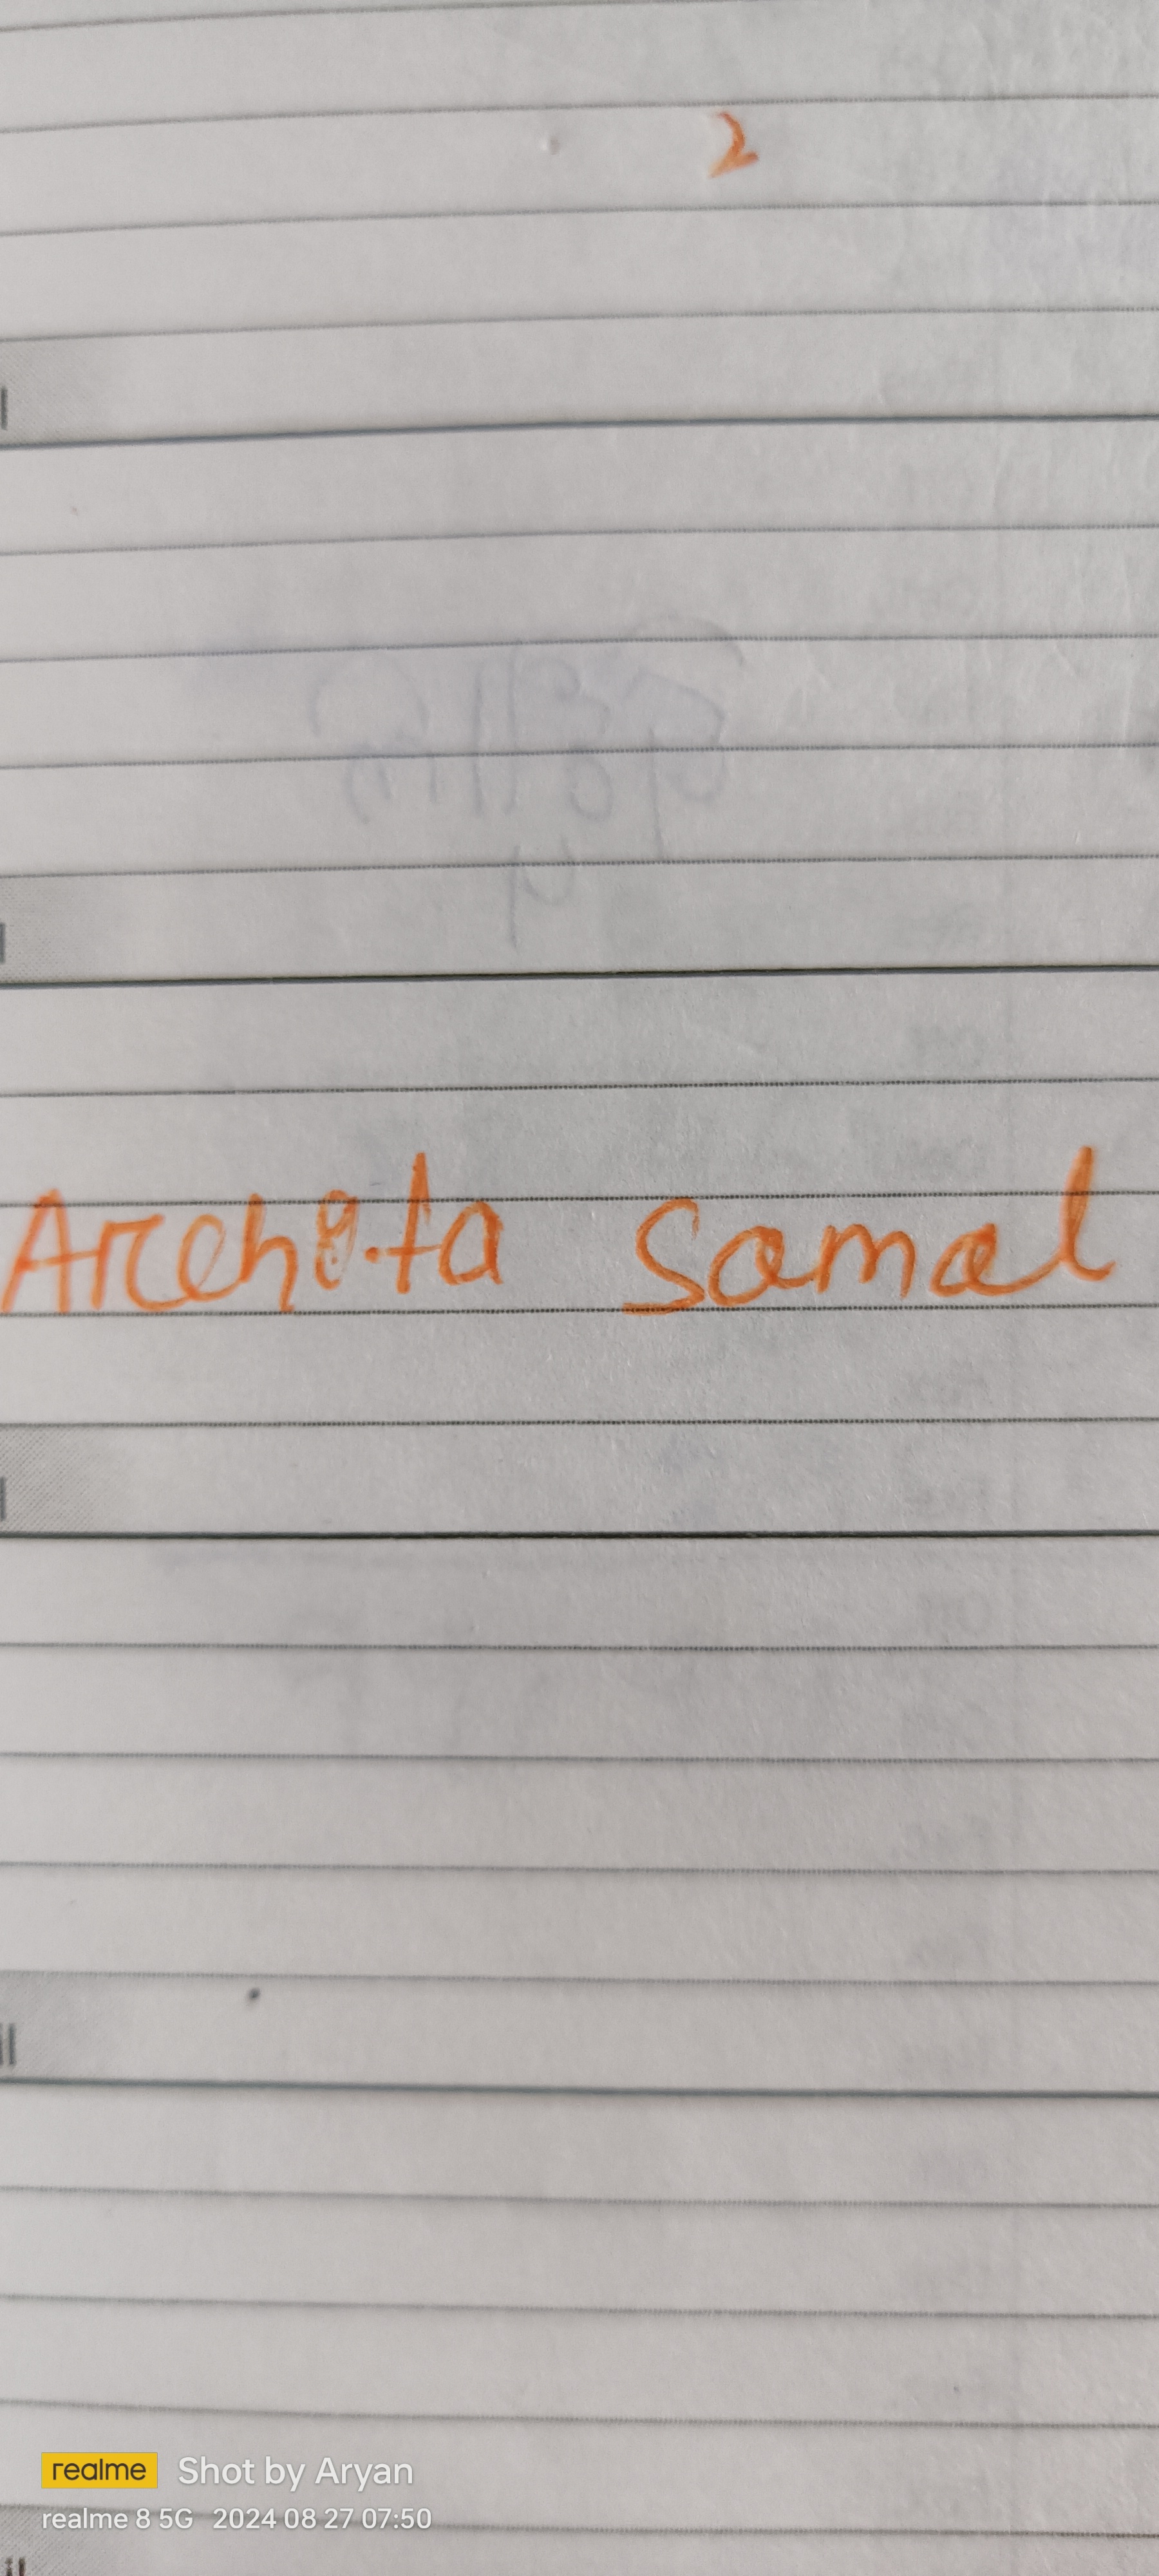 2
Archita Samal
realme Shot by Aryan
realme 8 5G 2024 08 27 07:50